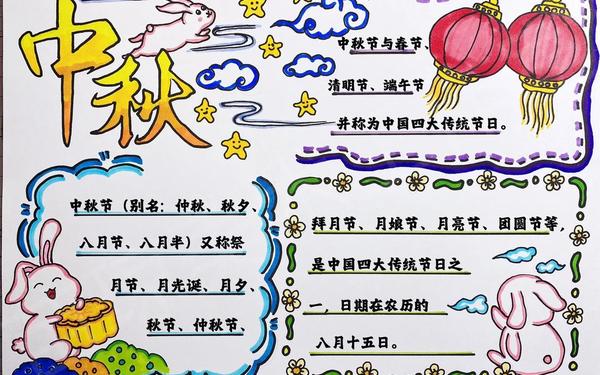 中秋
中秋节与春节、
清明节、端午节
并称为中国四大传统节日。
中秋节（别名：仲秋、秋夕
八月节、八月半）又称祭
月节、月光诞、月夕、
秋节、仲秋节、
拜月节、月娘节、月亮节、团圆节等，
是中国四大传统节日之
一，日期在农历的
八月十五日。